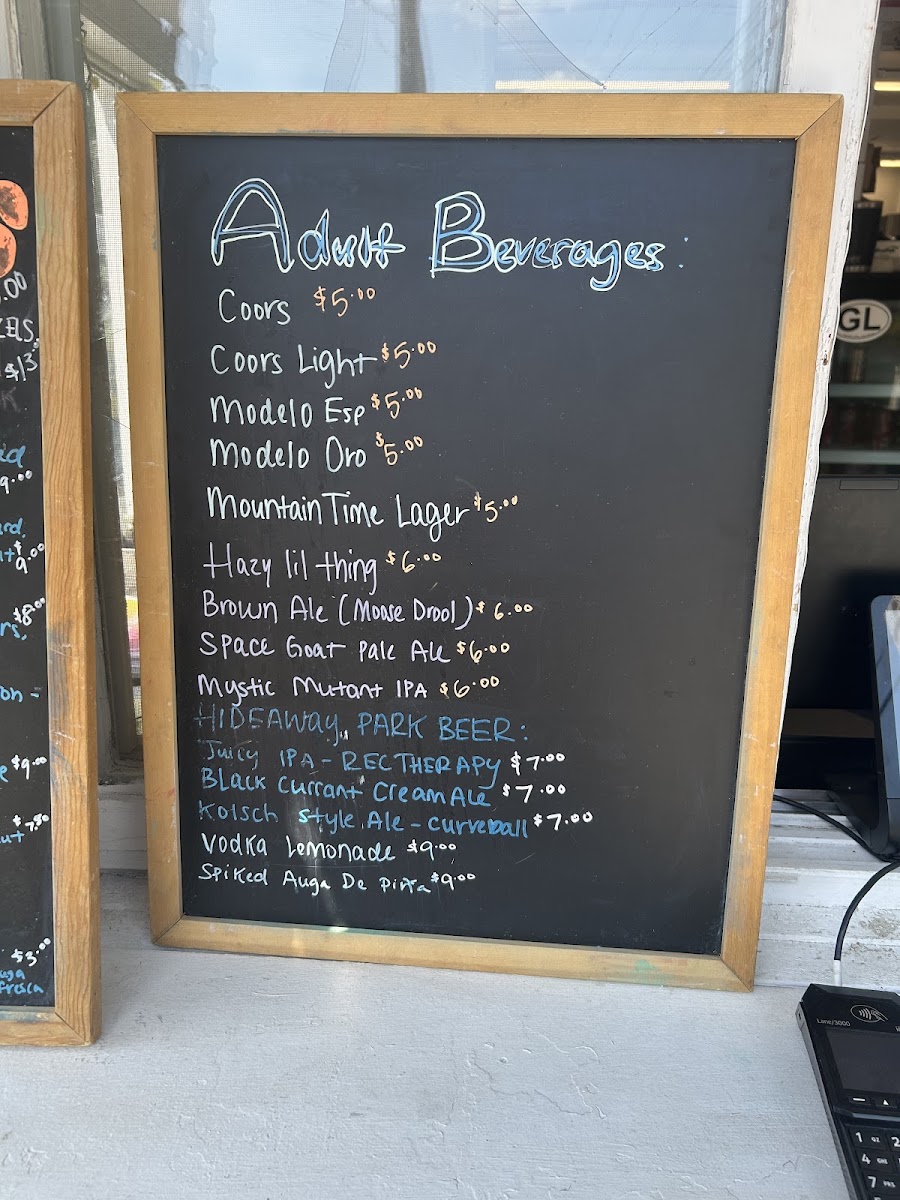 Adult Beverages:
Coors $5.00
Coors Light $5.00
Modelo Esp $5.00
Modelo Oro $5.00
Mountain Time Lager $5.00
Hazy lil thing $6.00
Brown Ale (Moose Drool) $6.00
Space Goat Pale Ale $6.00
Mystic Mutant IPA $6.00
HIDEAWAY PARK BEER:
Juicy IPA - RECTHERAPY $7.00
Black Currant Cream Ale $7.00
Kolsch Style Ale - curveball $7.00
Vodka Lemonade $9.00
Spiked Auga De Piña $9.00
.00
$13
9.00
$9.00
$8.00
on -
$9.00
$7.50
$3.00
fresca
GL
Lane/3000
1
2
4
7